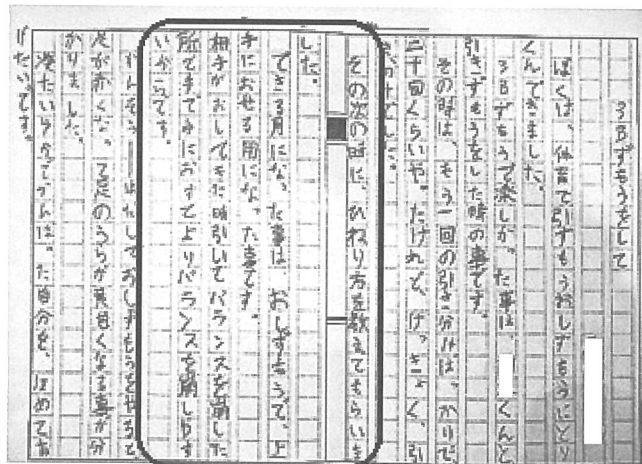 3Bずもうをして
ぼくは、体育で引ずもうおしずもうにとり
くんできました。
3Bずもうで楽しかった事は、くんと
引きずもうをした時の事です。
その時は、もう一回の引き分けは、かりで、
二十回くらいやったけれど、けっきょく、引
分けでした。
その次の時に、ひねり方を教えてもらいま
した。
できる用になった事は、おしずもうで、上
手におせる用になった事です。
相手がおしてきた時引いてバランスを崩した
所で手で おすとよりバランスを崩しやす
いからです。
はだしでおしずもうをやると
足が赤くなって足のうらが真白くなる事が分
かりました。
冷たい がんばった自分を、ほめてあ
げたいです。